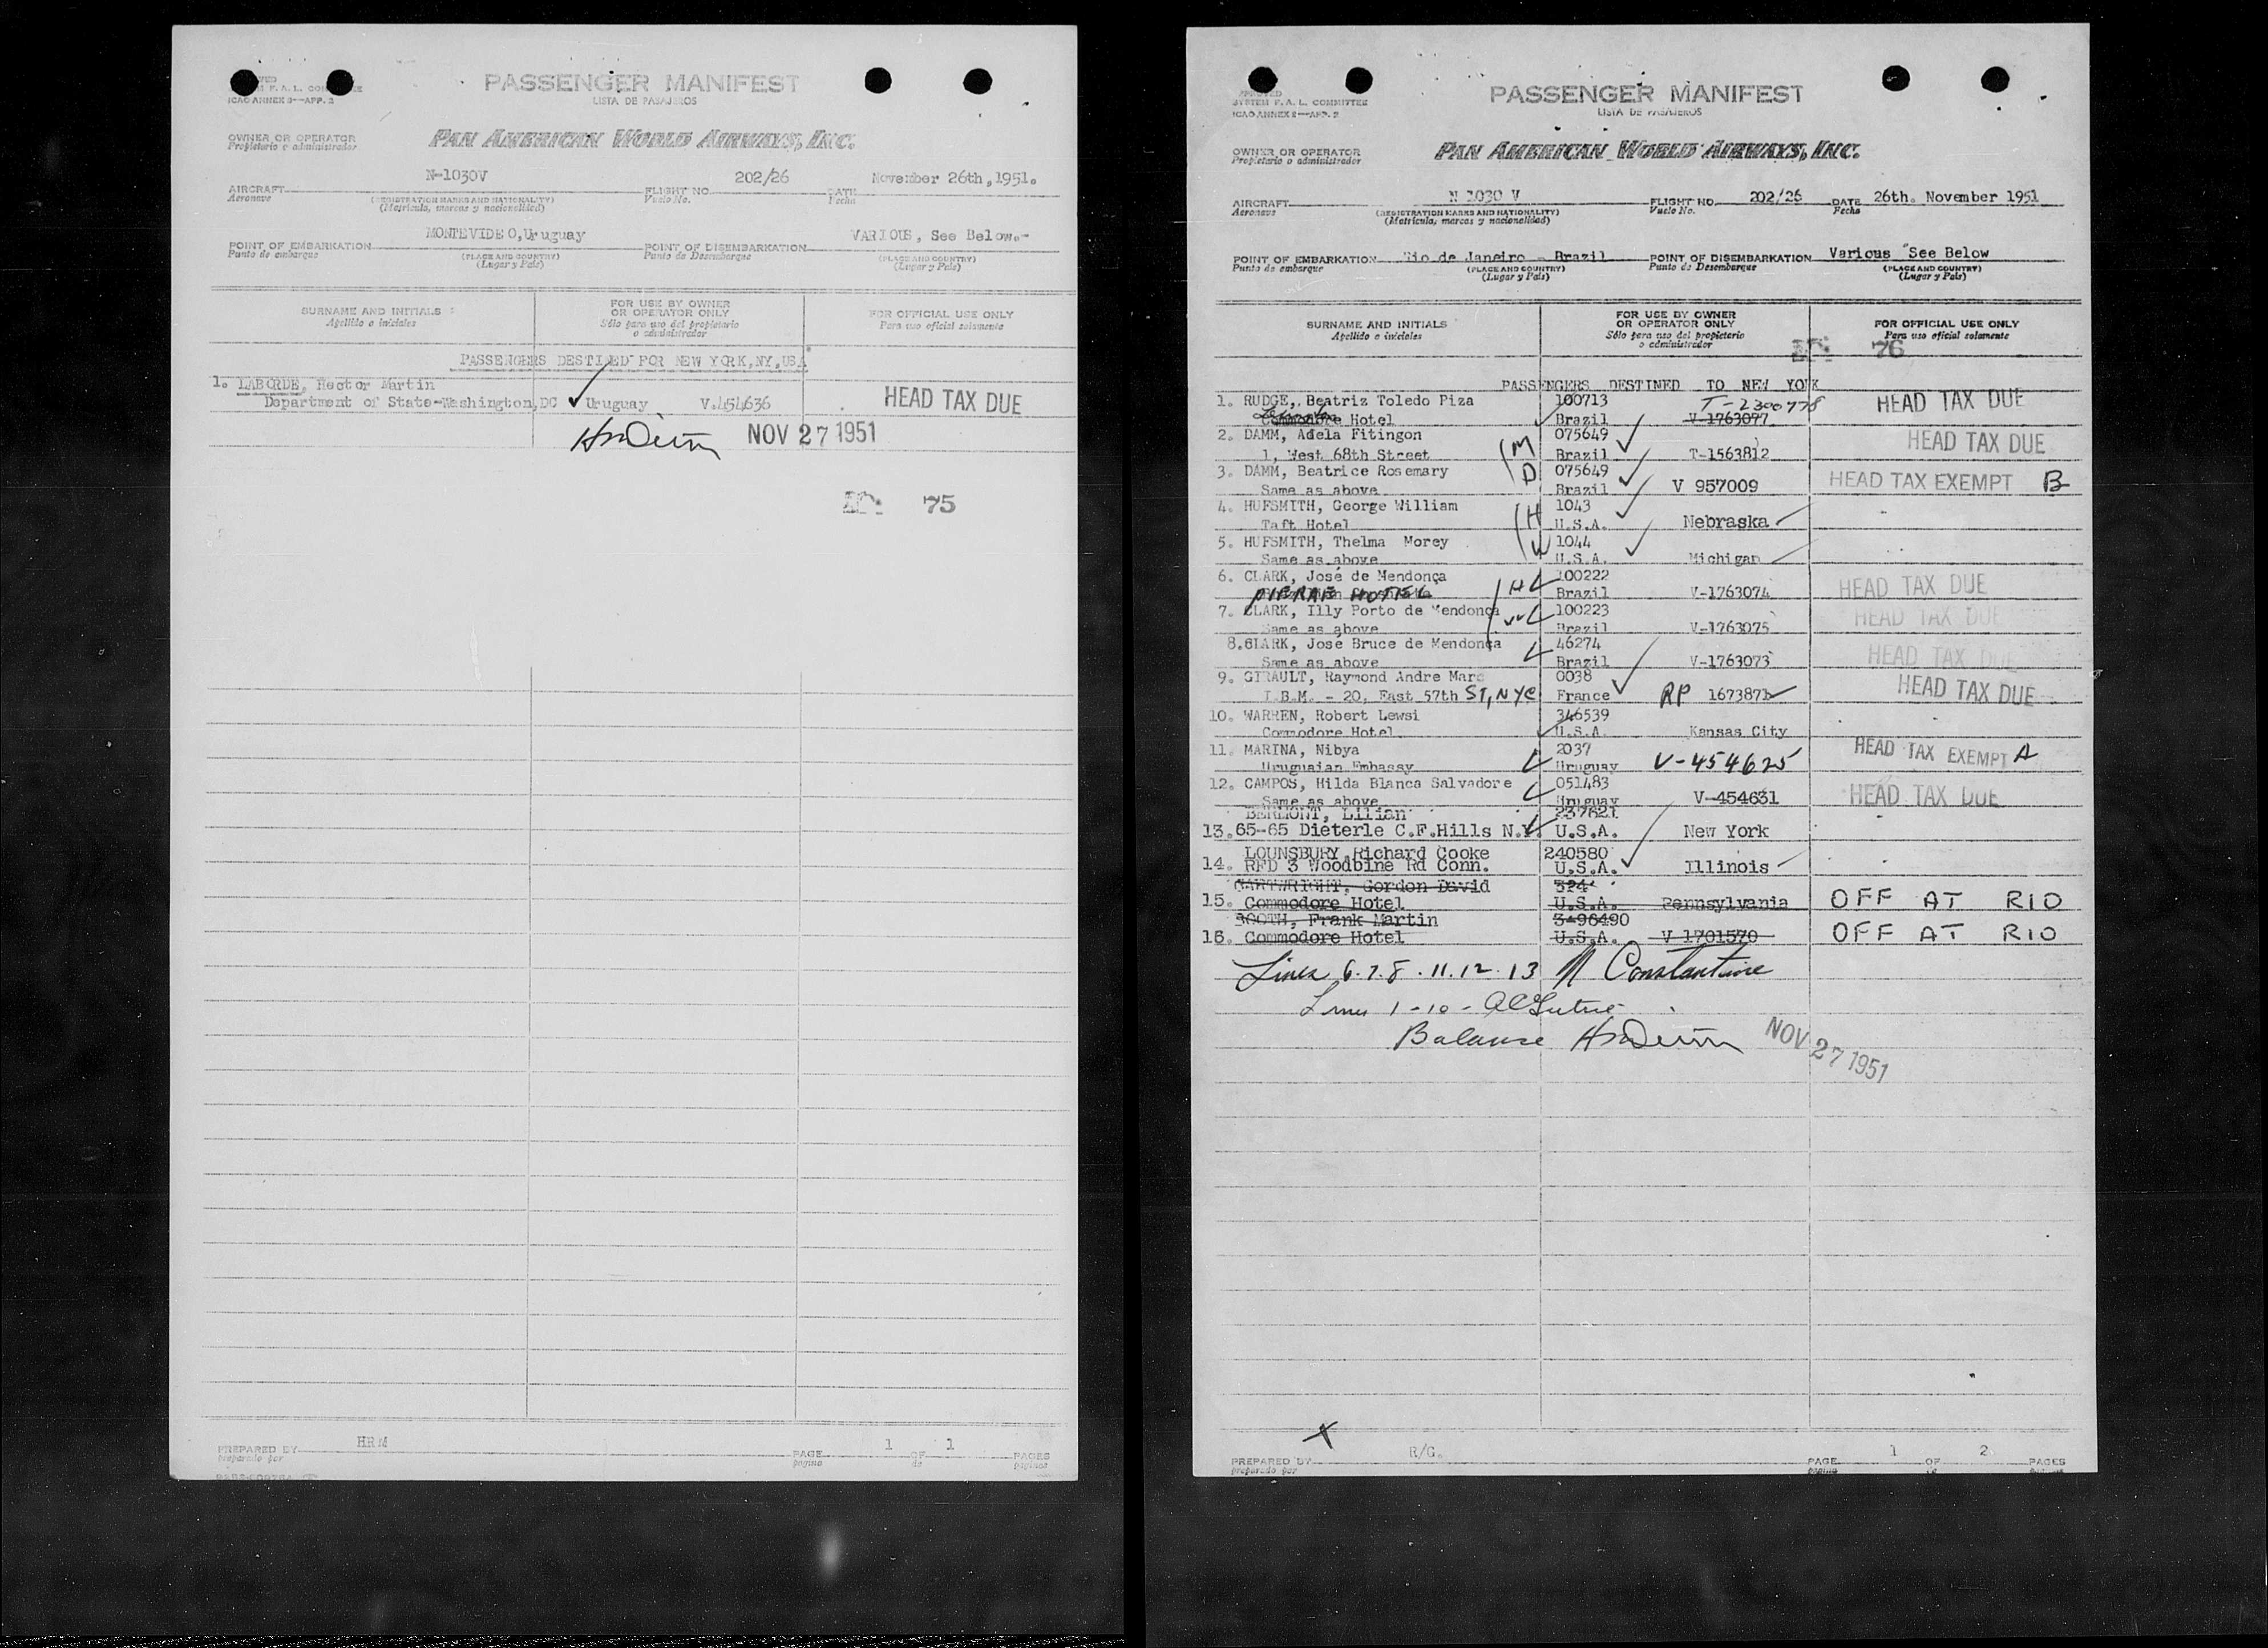 ICAO ANNEX 2—APP. 2
PASSENGER MANIFEST
LISTA DE PASAJEROS
OWNER OR OPERATOR
Propietario o administrador
PAN AMERICAN WORLD AIRWAYS, INC.
AIRCRAFT N-1030V FLIGHT NO. 202/26 DATE November 26th, 1951.
Aeronave (REGISTRATION MARKS AND NATIONALITY) Vuelo No. Fecha
(Matrícula, marcas y nacionalidad)
POINT OF EMBARKATION MONTEVIDEO, Uruguay POINT OF DISEMBARKATION VARIOUS, See Below.-
Punto de embarque (PLACE AND COUNTRY) Punto de Desembarque (PLACE AND COUNTRY)
(Lugar y País) (Lugar y País)
SURNAME AND INITIALS FOR USE BY OWNER OR OPERATOR ONLY FOR OFFICIAL USE ONLY
Apellido e iniciales Sólo para uso del propietario o administrador Para uso oficial solamente
PASSENGERS DESTINED FOR NEW YORK, NY, USA
1. LABORDE, Hector Martin
Department of State-Washington, DC Uruguay V.454636 HEAD TAX DUE
NOV 27 1951
75
PREPARED BY HRM PAGE 1 OF 1 PAGES
preparado por página de páginas
APPROVED
SYSTEM F. A. L. COMMITTEE
ICAO ANNEX 2—APP. 2
PASSENGER MANIFEST
LISTA DE PASAJEROS
OWNER OR OPERATOR
Propietario o administrador
PAN AMERICAN WORLD AIRWAYS, INC.
AIRCRAFT N 1030 V FLIGHT NO. 202/26 DATE 26th. November 1951
Aeronave (REGISTRATION MARKS AND NATIONALITY) Vuelo No. Fecha
(Matrícula, marcas y nacionalidad)
POINT OF EMBARKATION Rio de Janeiro - Brazil POINT OF DISEMBARKATION Various See Below
Punto de embarque (PLACE AND COUNTRY) Punto de Desembarque (PLACE AND COUNTRY)
(Lugar y País) (Lugar y País)
SURNAME AND INITIALS FOR USE BY OWNER OR OPERATOR ONLY FOR OFFICIAL USE ONLY
Apellido e iniciales Sólo para uso del propietario o administrador Para uso oficial solamente
76
PASSENGERS DESTINED TO NEW YORK
1. RUDGE, Beatriz Toledo Piza 100713 T-2300778 HEAD TAX DUE
Commodore Hotel Brazil V-1763077
2. DAMM, Adela Fitingon M 075649 HEAD TAX DUE
1, West 68th Street Brazil T-1563812
3. DAMM, Beatrice Rosemary D 075649 HEAD TAX EXEMPT B
Same as above Brazil V 957009
4. HUFSMITH, George William H 1043
Taft Hotel U.S.A. Nebraska
5. HUFSMITH, Thelma Morey W 1044
Same as above U.S.A. Michigan
6. CLARK, José de Mendonça H 100222 HEAD TAX DUE
PIERRE HOTEL Brazil V-1763074
7. CLARK, Illy Porto de Mendonça W 100223 HEAD TAX DUE
Same as above Brazil V-1763075
8. CLARK, José Bruce de Mendonça 46274 HEAD TAX DUE
Same as above Brazil V-1763073
9. GIRAULT, Raymond Andre Marc 0038 HEAD TAX DUE
I.B.M. - 20, East 57th ST, NYC France RP 1673871
10. WARREN, Robert Lewsi 346539
Commodore Hotel U.S.A. Kansas City
11. MARINA, Nibya 2037 HEAD TAX EXEMPT A
Uruguaian Embassy Uruguay V-454625
12. CAMPOS, Hilda Blanca Salvadore 051483
Same as above Uruguay V-454631 HEAD TAX DUE
BERMONT, Lilian 237621
13. 65-65 Dieterle C.F.Hills N.Y. U.S.A. New York
LOUNSBURY, Richard Cooke 240580
14. RFD 3 Woodbine Rd Conn. U.S.A. Illinois
CARTWRIGHT, Gordon David 324
15. Commodore Hotel U.S.A. Pennsylvania OFF AT RIO
BOOTH, Frank Martin 3-96490
16. Commodore Hotel U.S.A. V 1701570 OFF AT RIO
Lines 6.7.8.11.12.13 N Constantine
Lines 1-10-
Balance
NOV 27 1951
PREPARED BY R/G. PAGE 1 OF 2 PAGES
preparado por